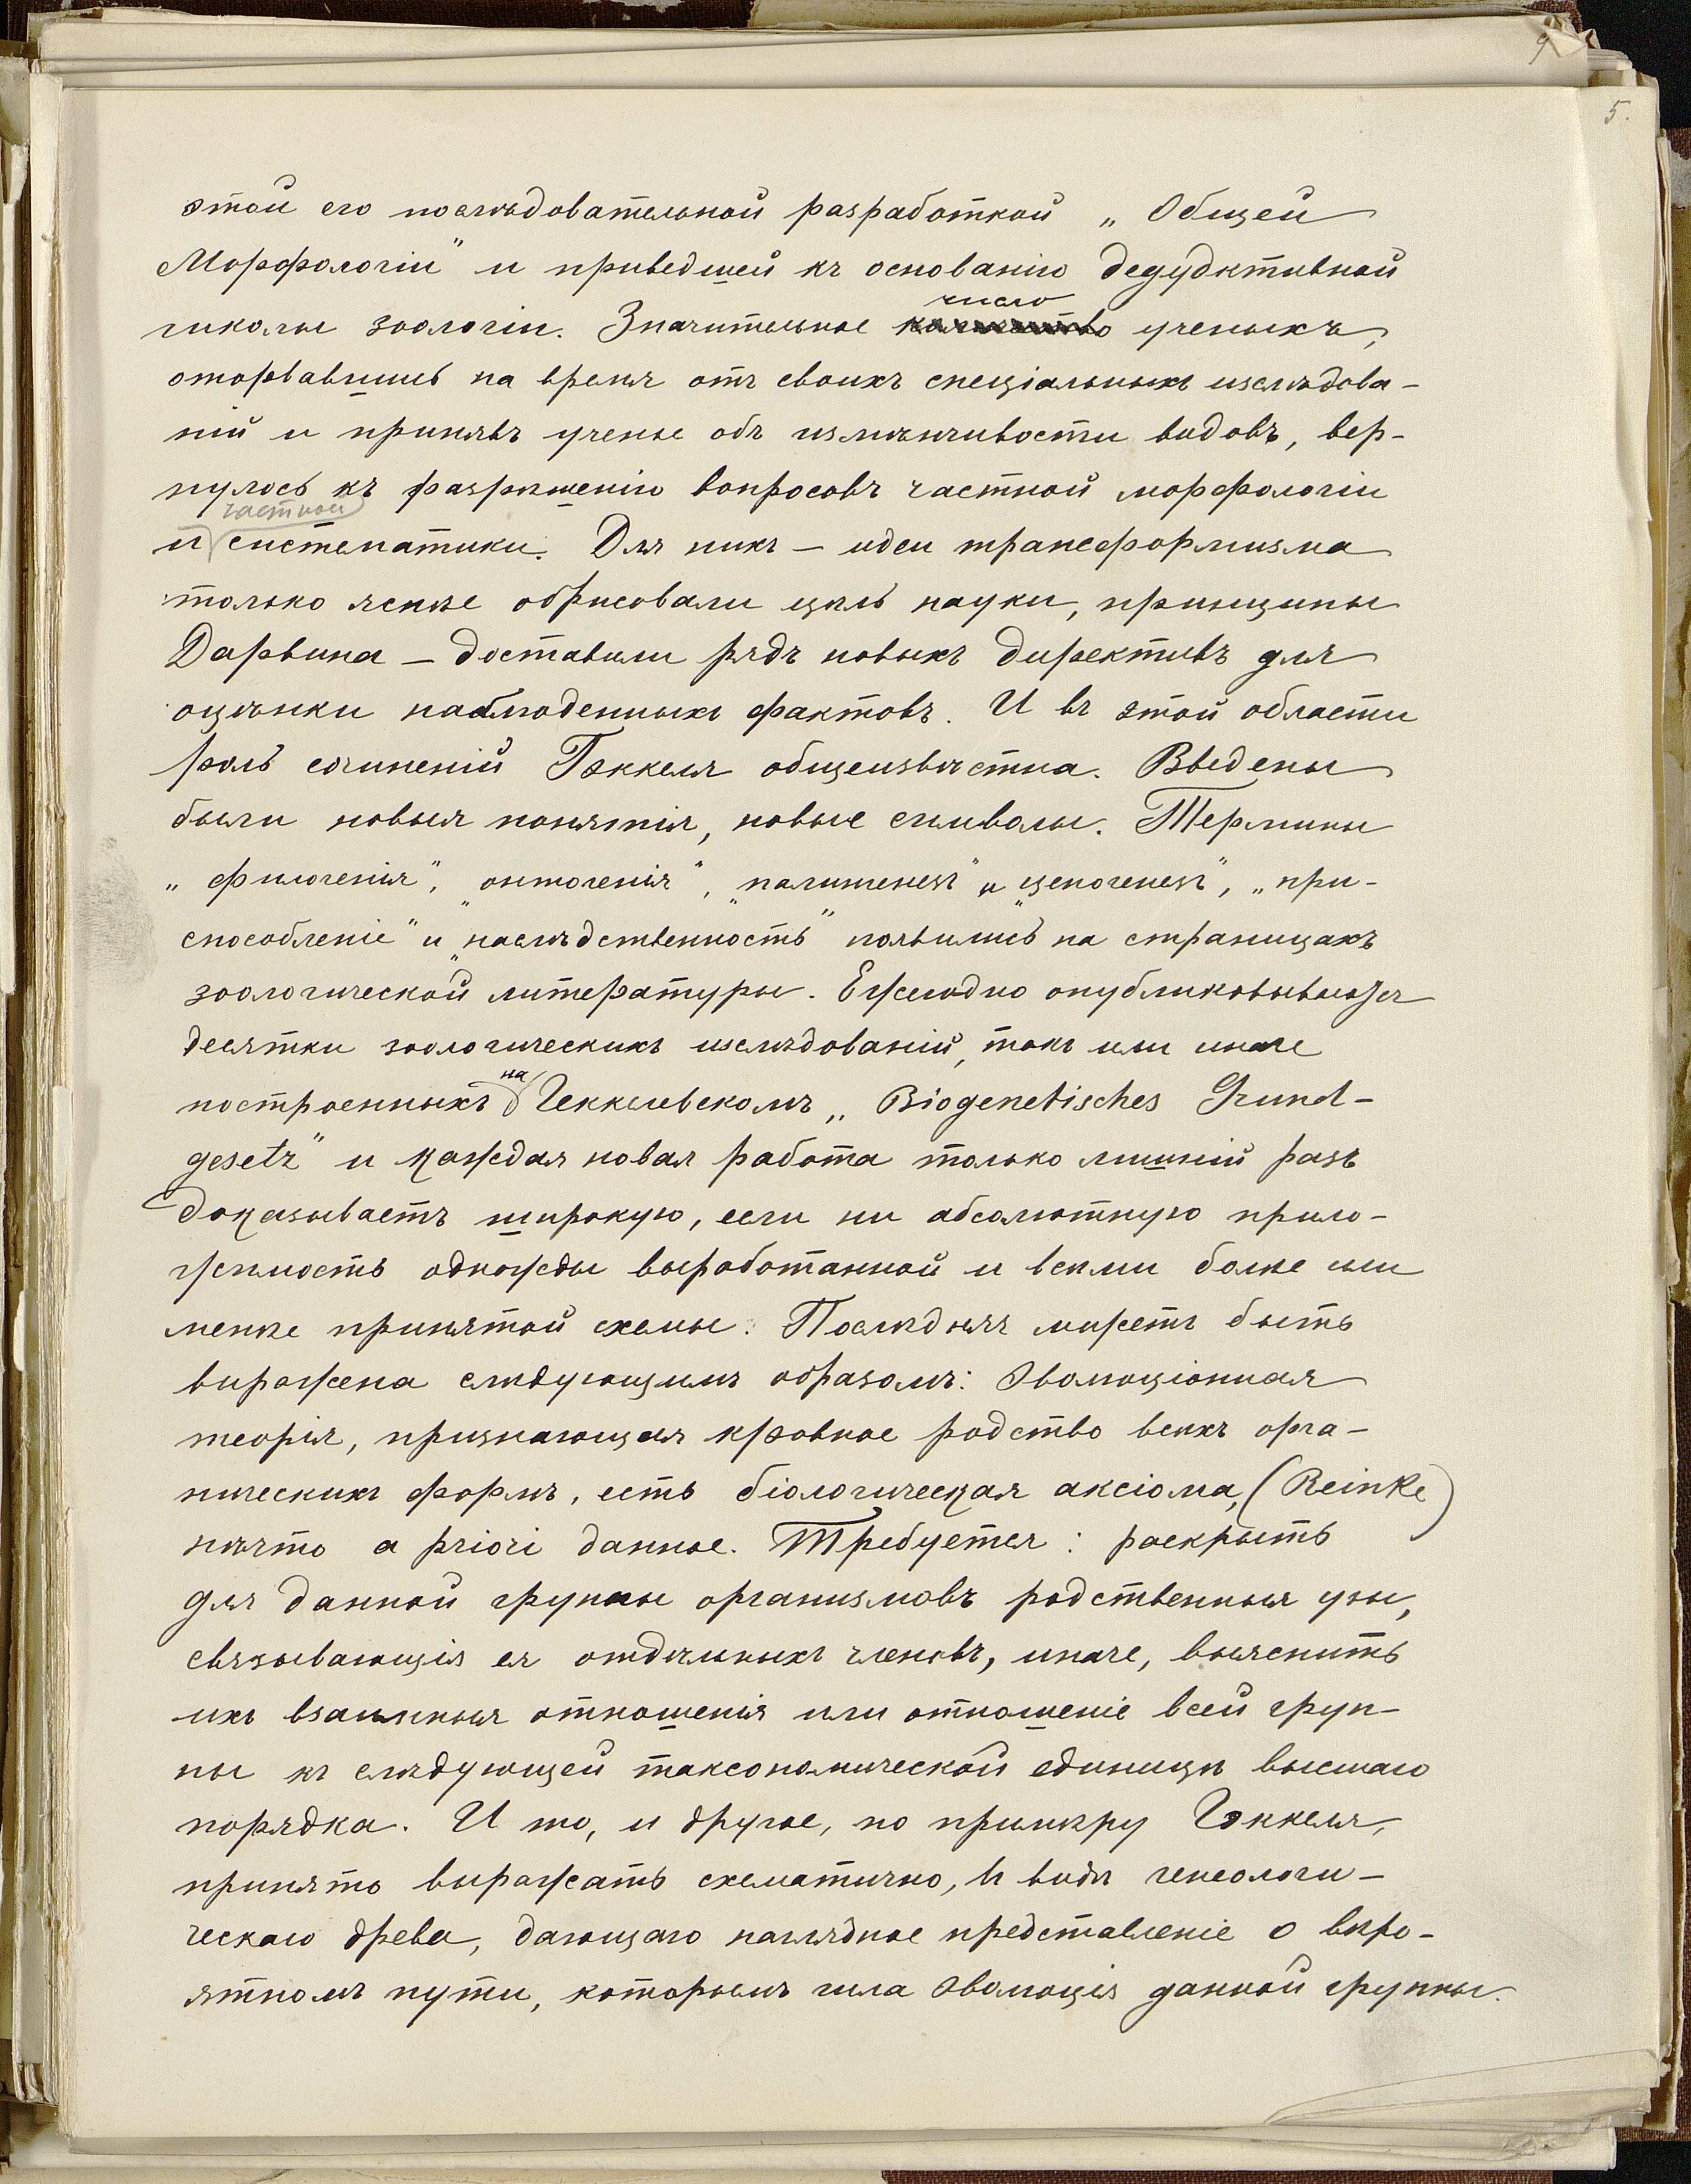 5.
этой его послѣдовательной разработкой „Общей
Морфологiи" и приведшей къ основанiю дедудктивной
школы зоологiи. Значительное число ученыхъ,
оторвавшись на время отъ своихъ спецiальныхъ изслѣдова-
нiй и принявъ ученье объ измѣнчивости видовъ, вер-
нулось къ разрѣшенiю вопросовъ частной морфологiи
и частной систематики. Для нихъ — идеи трансформизма
только яснѣе обрисовали цѣль науки, принципы
Дарвина — доставили рядъ новыхъ директивъ для
оцѣнки наблюденныхъ фактовъ. И въ этой области
роль сочиненiй Гэккеля общеизвѣстна. Введены
были новыя понятiя, новые символы. Термины
„филогенiя", „онтогенiя", „палингенезъ" и „ценогенезъ", „при-
способленiе" и „наслѣдственность" появились на страницахъ
зоологической литературы. Ежегодно опубликовываются
десятки зоологическихъ изслѣдованiй, такъ или иначе
построенныхъ на Геккелевскомъ „Biogenetisches Grund-
gesetz" и каждая новая работа только лишнiй разъ
доказываетъ широкую, если ни абсолютную прило-
жимость однажды выработанной и всѣми болѣе или
менѣе принятой схемы. Послѣдняя можетъ быть
выражена слѣдующимъ образомъ: Эволюцiонная
теорiя, признающая кровное родство всѣхъ орга-
ническихъ формъ, есть бiологическая аксiома, (Reinke)
нѣчто a priori данное. Требуется: раскрыть
для данной группы организмовъ родственныя узы,
связывающiя ея отдѣльныхъ членовъ, иначе, выяснить
ихъ взаимныя отношенiя или отношенiе всей груп-
пы къ слѣдующей таксономической единицѣ высшаго
порядка. И то, и другое, по примѣру Гэккеля,
принято выражать схематично, въ видѣ генеологи-
ческаго древа, дающаго наглядное представленiе о вѣро-
ятномъ пути, которымъ шла эволюцiя данной группы.